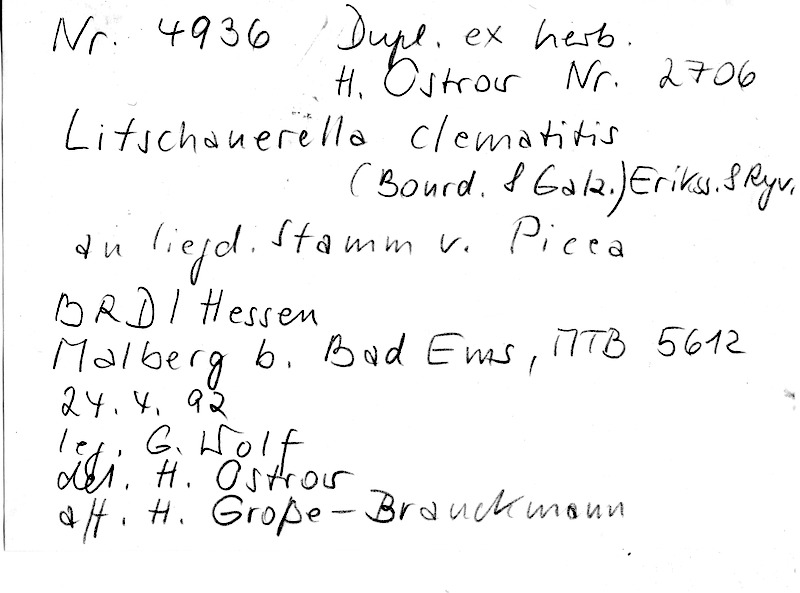 Nr. 4936 Dupl. ex herb.
H. Ostrow Nr. 2706
Litschauerella clematitis
(Bourd. & Galz.) Erikss. & Ryv.
an liegd. Stamm v. Picea
BRD/Hessen
Malberg b. Bad Ems, MTB 5612
24.4.92
leg. G. Wolf
det. H. Ostrow
aff. H. Große-Brauckmann